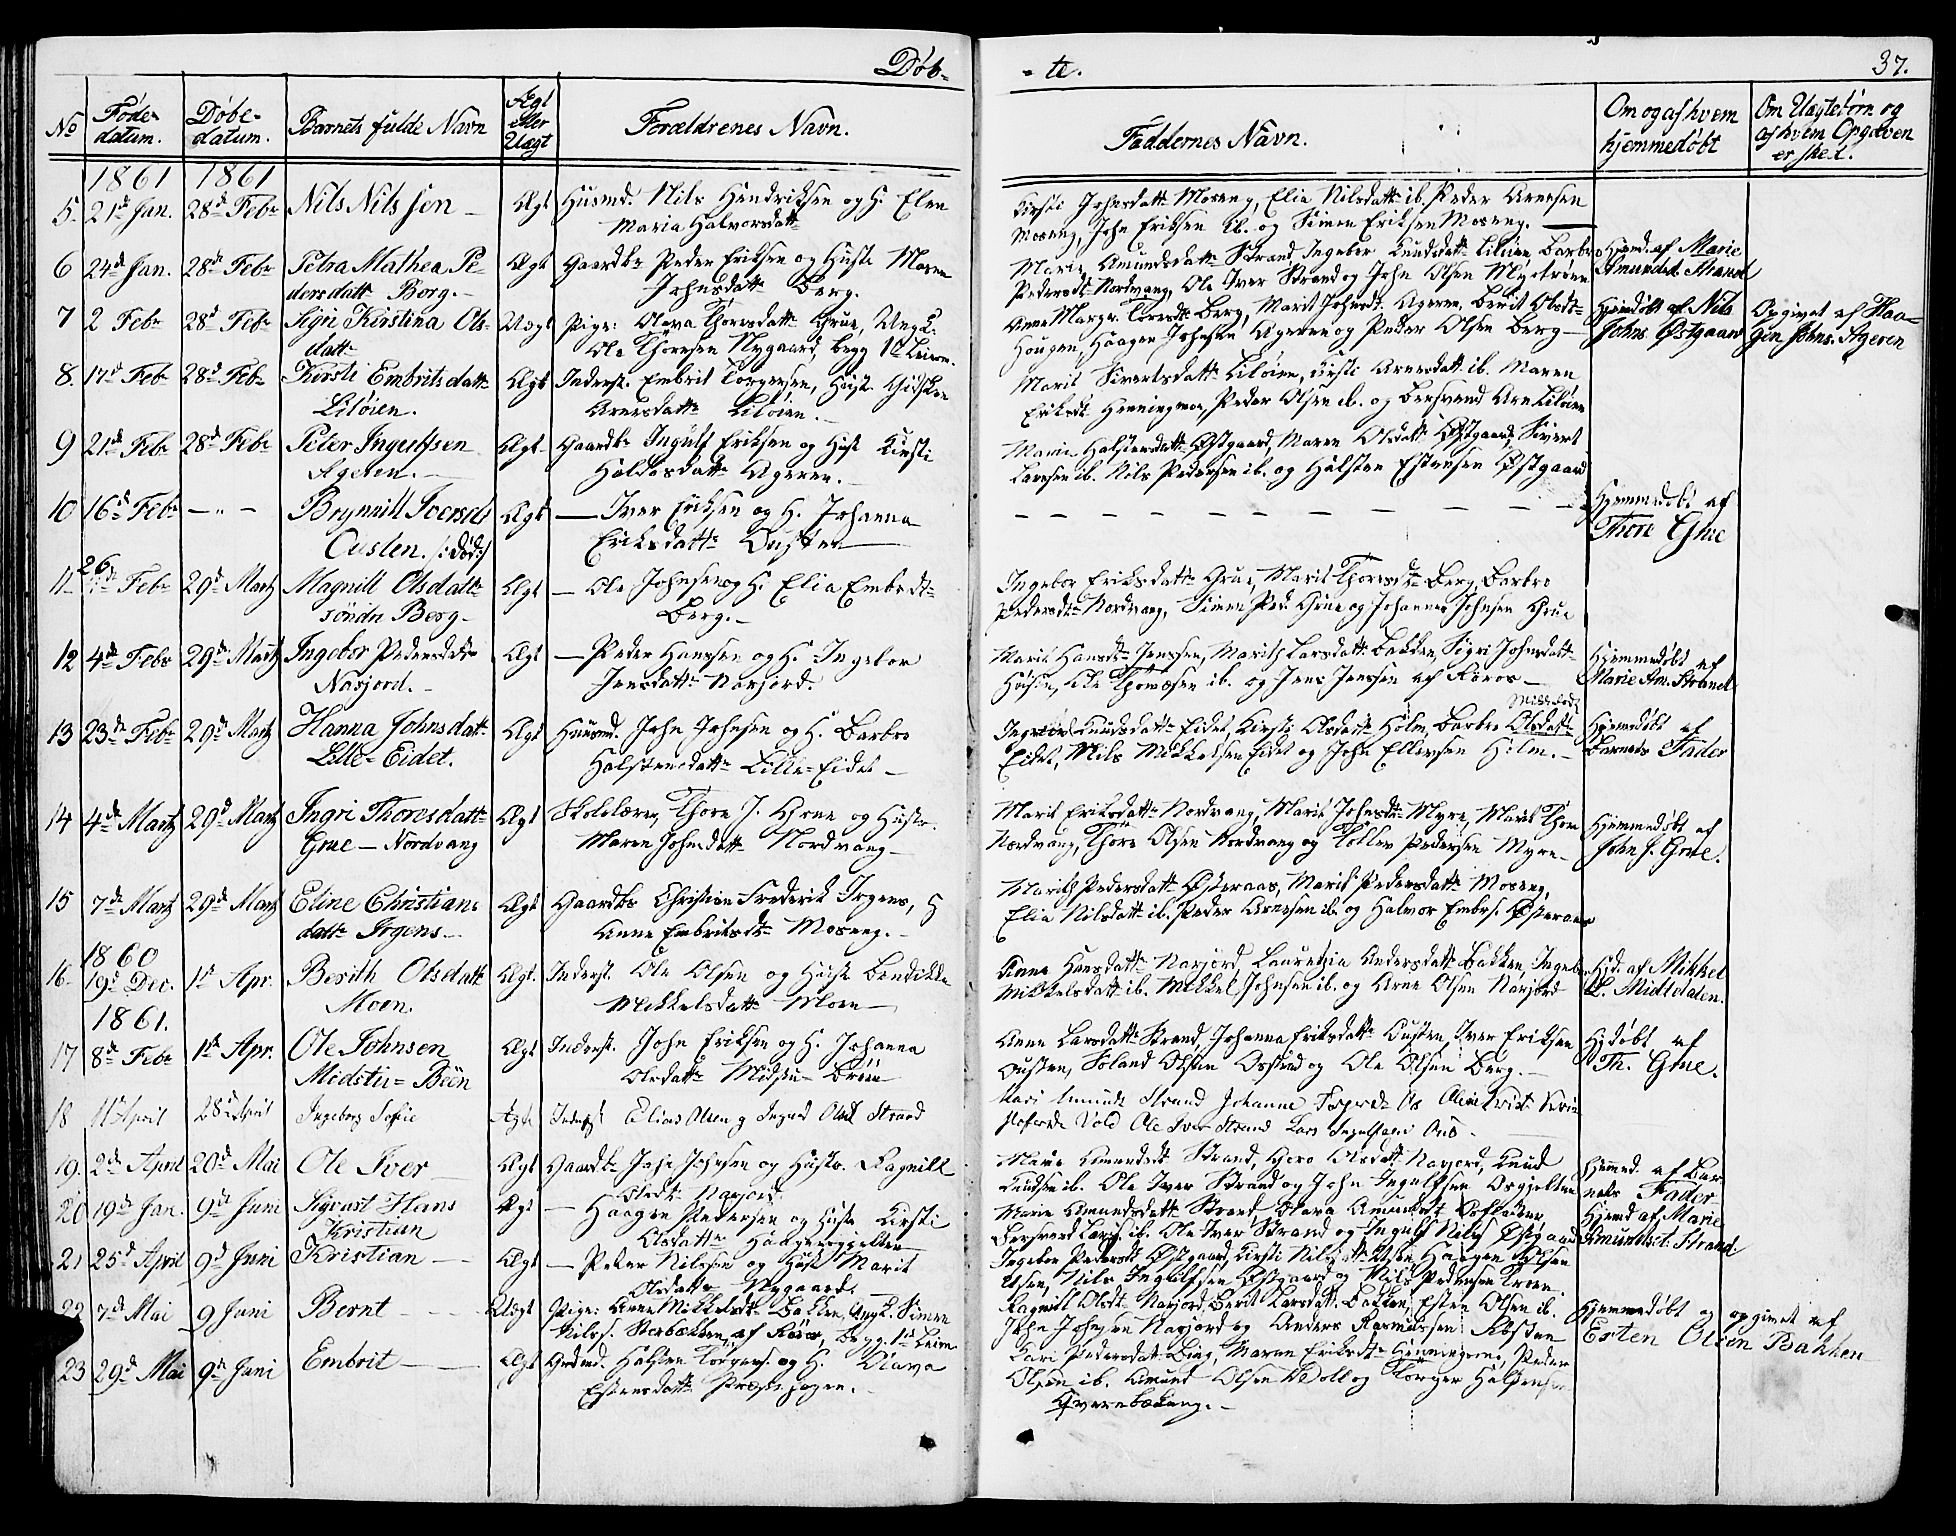 Døb-
- te.
37.
No
Føde-
datum.
Døbe-
datum.
Barnets fulde Navn
Ægt
eller
Uægt
Forældrenes Navn.
Faddernes Navn.
Om og af hvem
hjemmedøbt
Om Uægtebørn og
af hvem Opgaven
er sked.
1861 1861
5. 21de Jan. 28de Febr Nils Nilssen Ægt Husmd. Nils Hendriksen og H. Elen
Maria Halvorsdatt
Kirsti Johnsdatt Moseng, Elia Nilsdatt ib. Peder Arnesen
Moseng, John Eriksen ib. og Simen Eriksen Moseng.
6 24de Jan. 28de Febr Petra Mathea Pe-
dersdatt Berg.
Ægt Gaardbr Peder Eriksen og Hustr Maren
Johnsdatt Berg.
Marie Amundsdatt Strand, Ingebor Knudsdatt Liløien, Barbro
Pedersdt Nordvang, Ole Iver Strand og John Olsen
Hjemd. af Marie
Amundsd. Strand
7 2 Febr 28de Febr Sigri Kirstina Ols-
datt
Uægt Pige: Olava Thoresdatt Grue, Ungk.
Ole Thoresen Nygaard, begg 1ste Leierm.
Anne Margr. Toresdt Berg, Marit Johnsdt. Ageren, Berit Olsdt
Hougen, Haagen Johnsen Ageren og Peder Olsen Berg
Hjemdøbt af Nils
Johns. Østgaard
Opgivet af Haa-
gen Johns. Ageren
8. 17de Feb 28de Feb. Kirsti Embritsdatt
Liløien.
Ægt Inderst. Embrit Torgersen, Hustr. Gidsken
Arnesdatt Liløien.
Marit Sivertsdatt Liløien, Kirsti Arnesdatt ib. Maren
Eriksdt Henningmoe, Peder Olsen ib. og Bersvend Arn Liløien
9 21de Feb 28de Feb. Peter Ingulfsen
Ageren.
Ægt Gaardbr Ingulf Eriksen og Hustr Kirsti
Haldosdatt Ageren.
Marie Halstensdatt Østgaard, Maren Olsdatt Østgaard, Sivert
Larsen ib. Nils Pedersen ib. og Halsten Estensen Østgaard
10 16de Febr — " — Brynnill Iversdt
Ousten. /: død :/
Ægt — Iver Eriksen og H. Johanna
Eriksdatt Ousten
Hjemmedøbt af
Thore Grue
11 26de Febr 29de Martz Magnill Olsdatt
søndre Berg
Ægt — Ole Johnsen og H. Elia Embrtdt
Berg.
Ingebor Eriksdatt Grue, Marit Thoresdt Berg, Barbro
Pedersdt Nordvang, Simen Ped. Grue og Johannes Johnsen Grue
12 4de Febr 29de Martz Ingebor Pedersdatt
Narjord.
Ægt — Peder Hanssen og H. Ingebor
Jensdatt Narjord.
Marit Hansdt Jenssen, Marith Larsdatt Bakken, Sigri Johnsdatt
Ole Thomæsen ib. og Jens Jenssen af Røros
Hjemmedøbt af
Marie Am. Strand
13 23de Febr 29de Martz Hanna Johnsdatt
Lille-Eidet.
Ægt Huusmd. John Johnsen og H. Barbro
Halstensdatt Lille-Eidet
Ingebor Knudsdatt Eidet, Kirsti Olsdatt Holm, Barbro Olsdatt
Eidet, Nils Mikkelsen Eidet og John Ellevsen Holm.
Hjemmedøbt af
Barnets Fader
14 4de Martz 29de Martz Ingri Thoresdatt
Grue — Nordvang
Ægt Skolelærer, Thore J. Grue og Hustr.
Maren Johnsdatt Nordvang
Marit Eriksdatt Nordvang, Marit Johnsdt Myre, Marit Thor
Nordvang, Thore Olsen Nordvang og Tollev Pedersen Myre
Hjemmedøbt af
John J. Grue.
15 7de Martz 29de Martz Eline Christians
datt Irgens
Ægt Gaardbr Christian Frederik Irgens, H
Anne Embritsdt Moseng.
Marith Pedersdatt Østeraas, Marit Pedersdatt Moseng,
Elia Nilsdatt ib. Peder Arnesen ib. og Halvor Embrs. Østeraas
1860
16 19de Dec. 1ste Apr. Berith Olsdatt
Moen.
Ægt. Inderst. Ole Olsen og Hustr Bendikke
Mikkelsdatt Moen
Anne Hansdatt Narjord, Lauretzia Andersdatt Bakken, Ingebor
Mikkelsdatt ib. Mikkel Johnsen ib. og Arne Olsen Narjord
Hjd. af Mikkel
Midtdalen.
1861.
17 8de Febr 1ste Apr. Ole Johnsen
Midstu=Bæen
Ægt Inderst. John Eriksen og H. Johanna
Olsdatt Midstu
Anne Larsdatt Strand, Johanna Eriksdatt Ousten, Iver Eriksen
Ousten, Erland Olsen og Ole Olsen Berg.
Hjdøbt af
Th. Grue.
18 11te April 28de April Ingeborg Sofie Ægte Inderst Elias Olsen og Ingrid Olsdt Strand
Kari Amundt Strand Johanne
Vold Ole Iver Strand Lars Ingulfsen Ous
19. 2de April 20de Mai Ole Iver Ægt Gaardbr John Johnsen og Hustr. Ragnill
Olsdt Narjord.
Marie Amundsdt Strand, Goro Olsdatt Narjord, Knud
Knudsen ib. Ole Iver Strand og John Ingulfsen
Hjemmed. af Bar-
nets Fader
20 19de Jan. 9de Juni Sigvart Hans
Kristian
Ægt — Haagen Pedersen og Hustr Kirsti
Olsdatt
Marie Amundsdatt Strand, Olava Amundsdt
Bersvend Lars. ib. Ole Iver Strand og Ingulf Nils. Østgaard
Hjemd af Marie
Amundsdt Strand
21 25de April 9de Juni Kristian Ægt — Peder Nilssen og Hustr Marit
Olsdatt Nygaard.
Ingebor Pedersdt Østgaard, Kirsti Nilsdatt Utsen, Haagen Olsen
Utsen, Nils Ingulfsen Østgaard og Nils Pedersen Kroen.
22 7de Mai 9 Juni Bernt Uægt Pige: Anne Mikkelsdt Bakken, Ungk. Simen
Nilss. Storbækken af Røros, begg. 1ste Leierm.
Ragnill Olsdt Narjord, Berit Larsdatt Bakken, Esten Olsen ib.
John Johnsen Narjord og Anders Rasmussen
Hjemmedøbt og opgivet af
Esten Olsen Bakken
23 29de Mai 9de Juni Embrit Ægt Grdmd. Halsten Torgers. og H. Olava
Estensdatt
Kari Pedersdatt Berg, Maren Eriksdt Henningmoe, Peder
Olsen ib. Amund Olsen Voll og Torger Halstensen
Kvernbækeng.